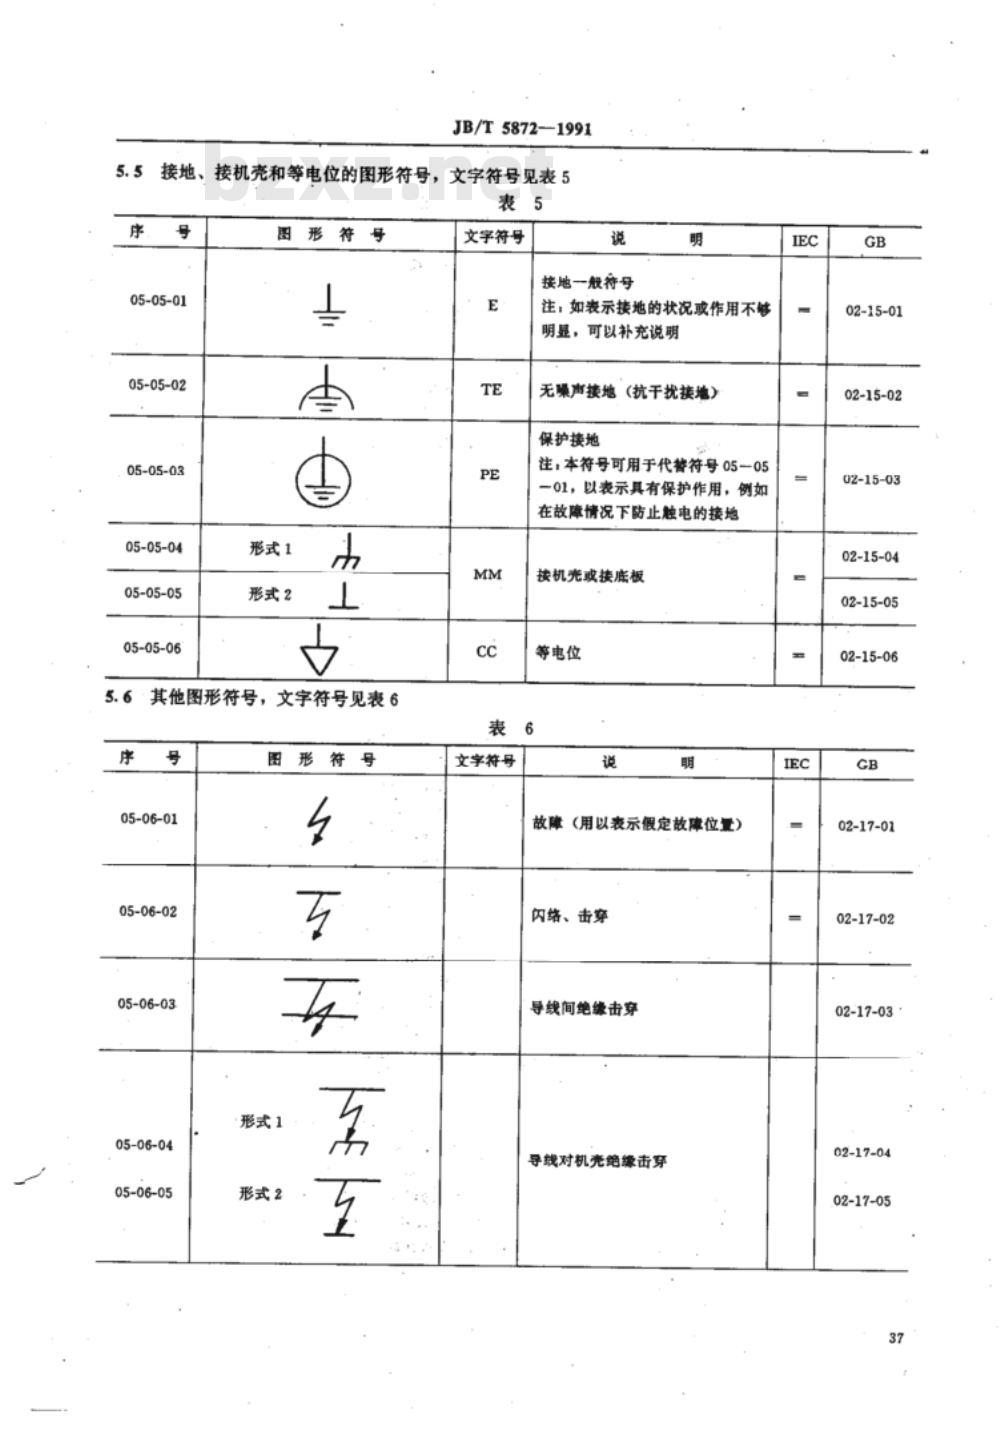 JB/T 5872—1991
bzxz.net
5.5 接地、接机壳和等电位的图形符号，文字符号见表 5
表 5
序 号 图 形 符 号 文字符号 说 明 IEC GB
05-05-01 E 接地一般符号
注：如表示接地的状况或作用不够
明显，可以补充说明 = 02-15-01
05-05-02 TE 无噪声接地（抗干扰接地） = 02-15-02
05-05-03 PE 保护接地
注：本符号可用于代替符号 05—05
—01，以表示具有保护作用，例如
在故障情况下防止触电的接地 = 02-15-03
05-05-04 形式 1 02-15-04
MM 接机壳或接底板 =
05-05-05 形式 2 02-15-05
05-05-06 CC 等电位 = 02-15-06
5.6 其他图形符号，文字符号见表 6
表 6
序 号 图 形 符 号 文字符号 说 明 IEC GB
05-06-01 故障（用以表示假定故障位置） = 02-17-01
05-06-02 闪络、击穿 = 02-17-02
05-06-03 导线间绝缘击穿 02-17-03
形式 1
05-06-04 导线对机壳绝缘击穿 02-17-04
05-06-05 形式 2 02-17-05
37